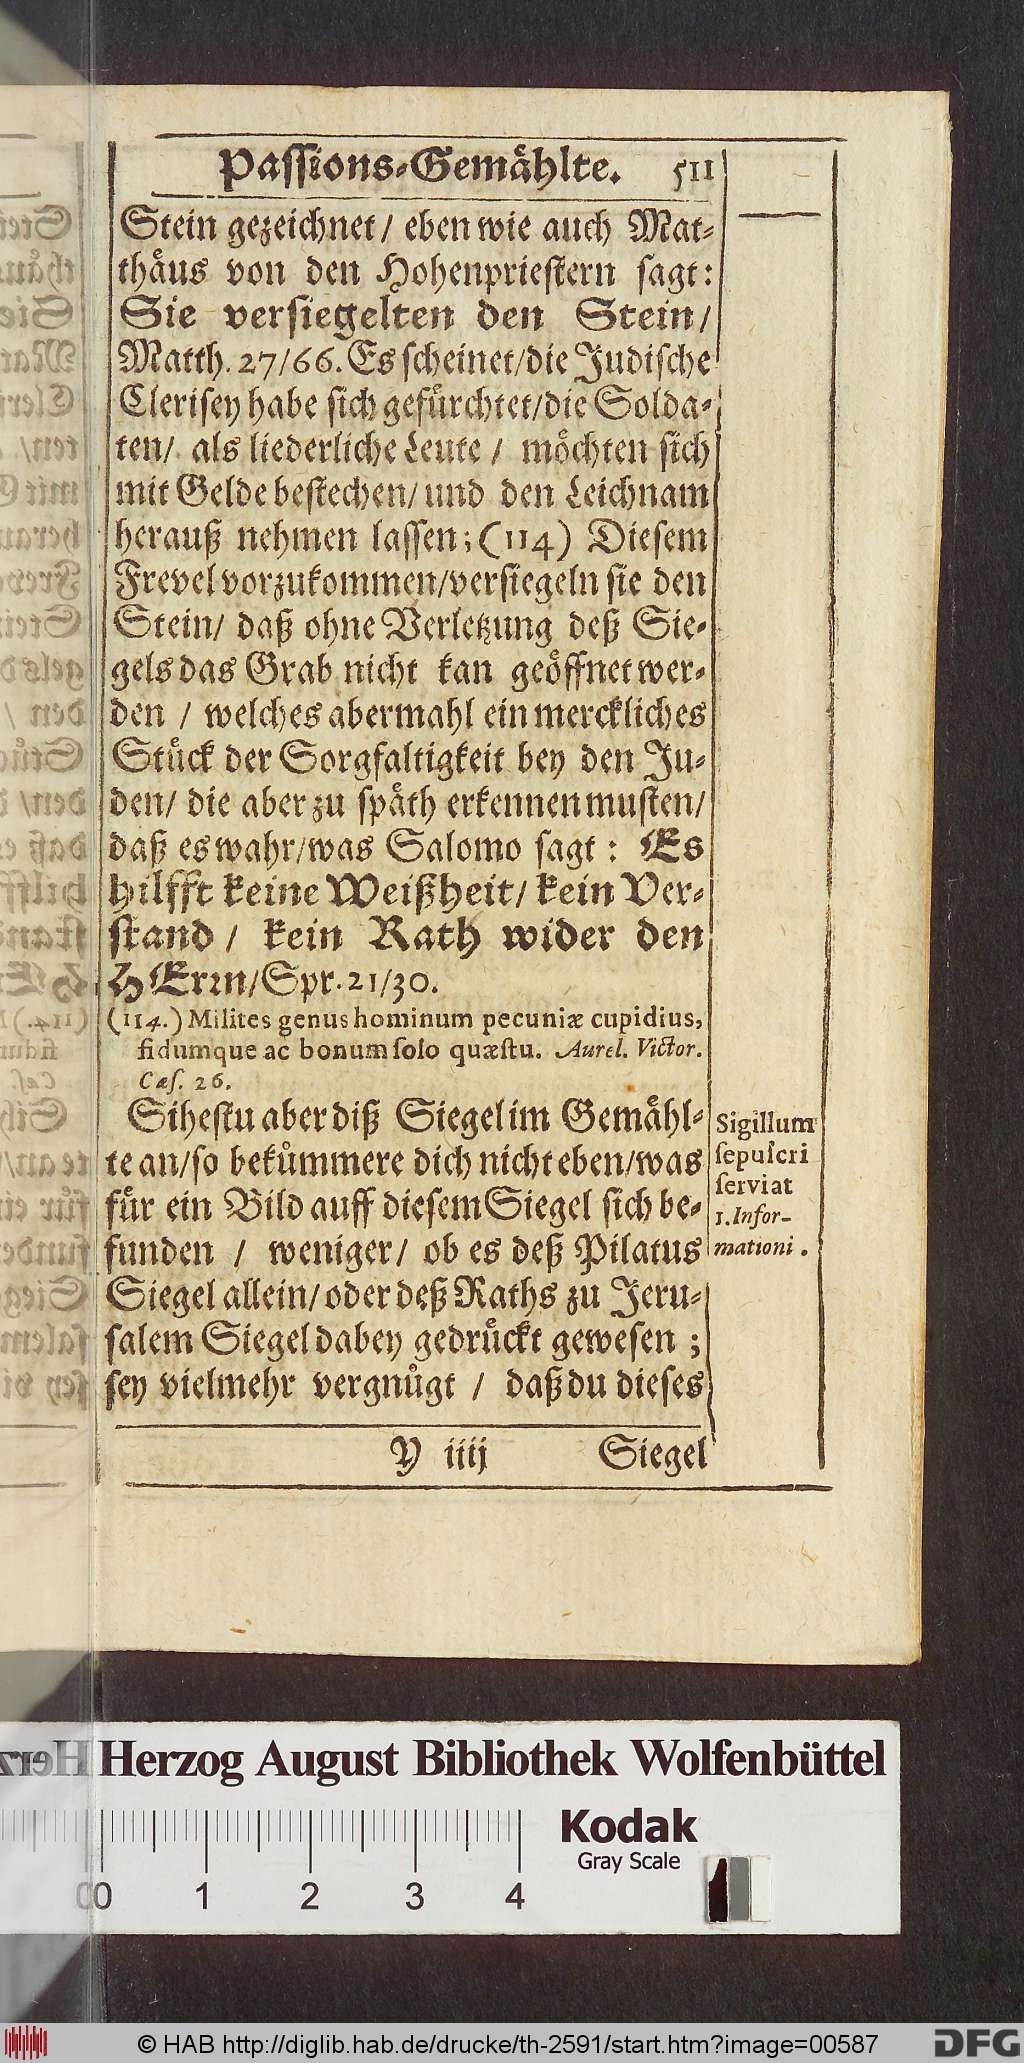 Passions-Gemählte. 511
Stein gezeichnet / eben wie auch Mat-
thäus von den Hohenpriestern sagt:
Sie versiegelten den Stein /
Matth. 27/66. Es scheinet / die Judische
Clerisey habe sich gefürchtet / die Solda-
ten / als liederliche Leute / möchten sich
mit Gelde bestechen / und den Leichnam
herauß nehmen lassen; (114) Diesem
Frevel vorzukommen / versiegeln sie den
Stein / daß ohne Verletzung deß Sie-
gels das Grab nicht kan geöffnet wer-
den / welches abermahl ein merckliches
Stück der Sorgfaltigkeit bey den Ju-
den / die aber zu späth erkennen musten /
daß es wahr / was Salomo sagt: Es
hilfft keine Weißheit / kein Ver-
stand / kein Rath wider den
HErrn / Spr. 21/30.
(114.) Milites genus hominum pecuniæ cupidius,
fidumque ac bonum solo quæstu. Aurel. Victor.
Cæs. 26.
Sihestu aber diß Siegel im Gemähl-
te an / so bekümmere dich nicht eben / was
für ein Bild auff diesem Siegel sich be-
funden / weniger / ob es deß Pilatus
Siegel allein / oder deß Raths zu Jeru-
salem Siegel dabey gedrückt gewesen;
sey vielmehr vergnügt / daß du dieses
Sigillum
sepulcri
serviat
1. Infor-
mationi.
Y iiij Siegel
Herzog August Bibliothek Wolfenbüttel
Kodak
Gray Scale
0 1 2 3 4
© HAB http://diglib.hab.de/drucke/th-2591/start.htm?image=00587
DFG